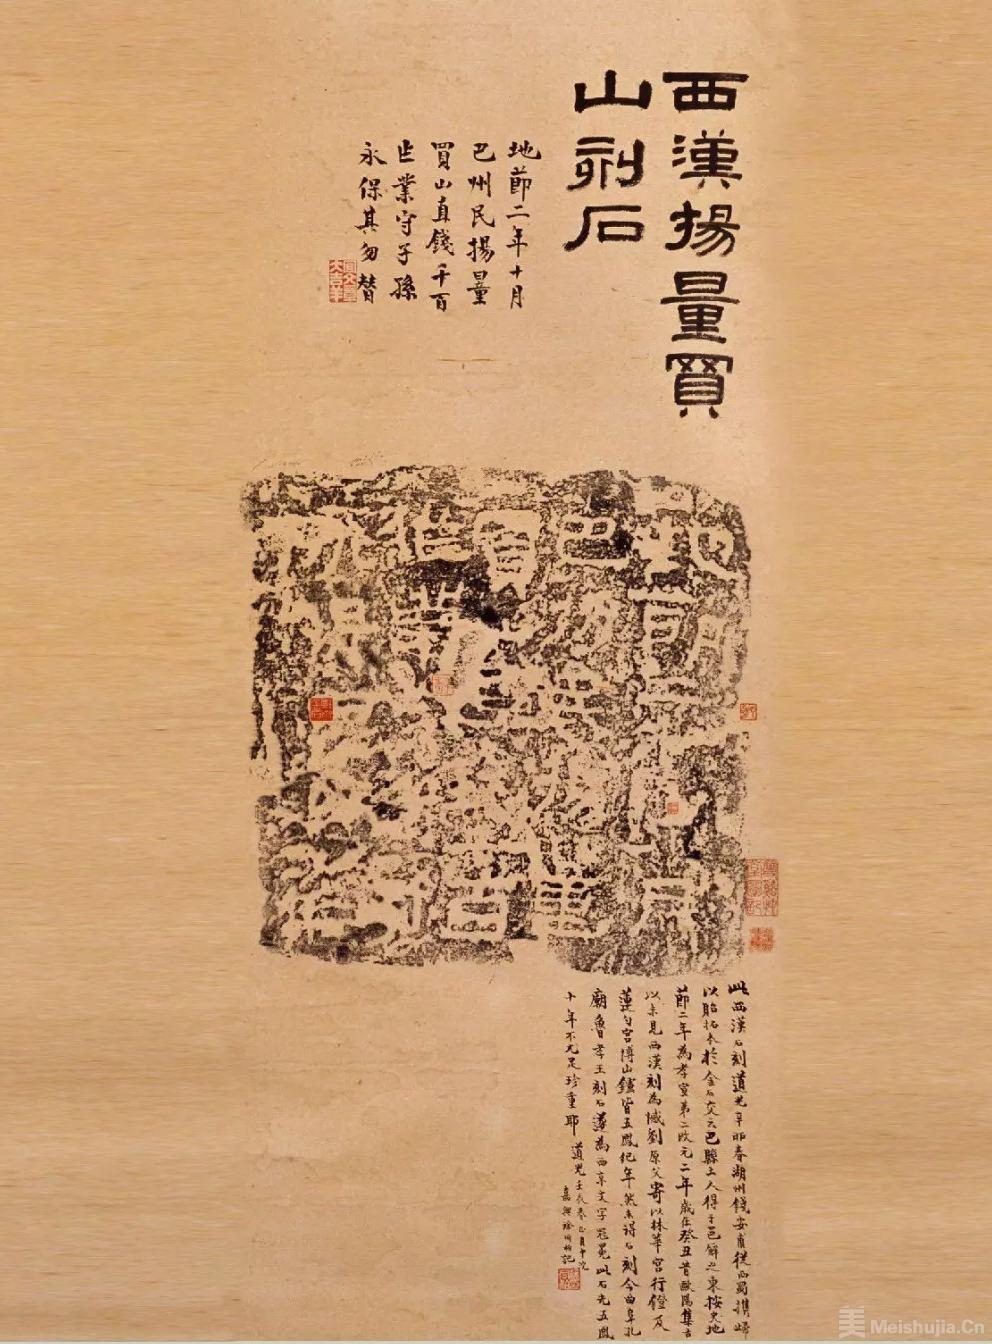 西漢揚量買
山刻石
地節二年十月
巴州民揚量
買山直錢千百
㐀業守子孫
永保其勿替
此西漢石刻道光辛卯春湖州錢安甫從西蜀携歸
以貽拓本於金石交云巴縣土人得于邑解之東按史地
節二年為孝宣第二改元二年歲在癸丑昔歐陽集古
以未見西漢刻為憾劉原父寄以林華宮行鐙及
蓮勺宮博山鑪皆五鳳紀年然未得石刻今曲阜孔
廟魯孝王刻石遂為西京文字冠冕此石先五鳳
十年不尤足珍重耶 道光壬辰春正月中浣
嘉興徐同柏記
Meishujia.Cn